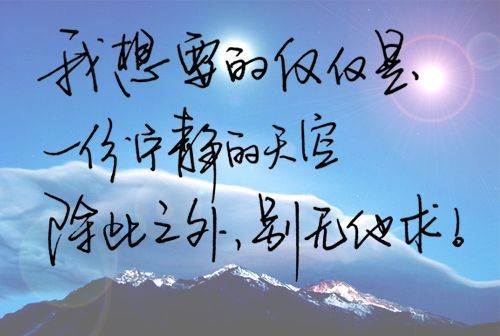 我想要的仅仅是、
一份宁静的天空
除此之外，别无他求！